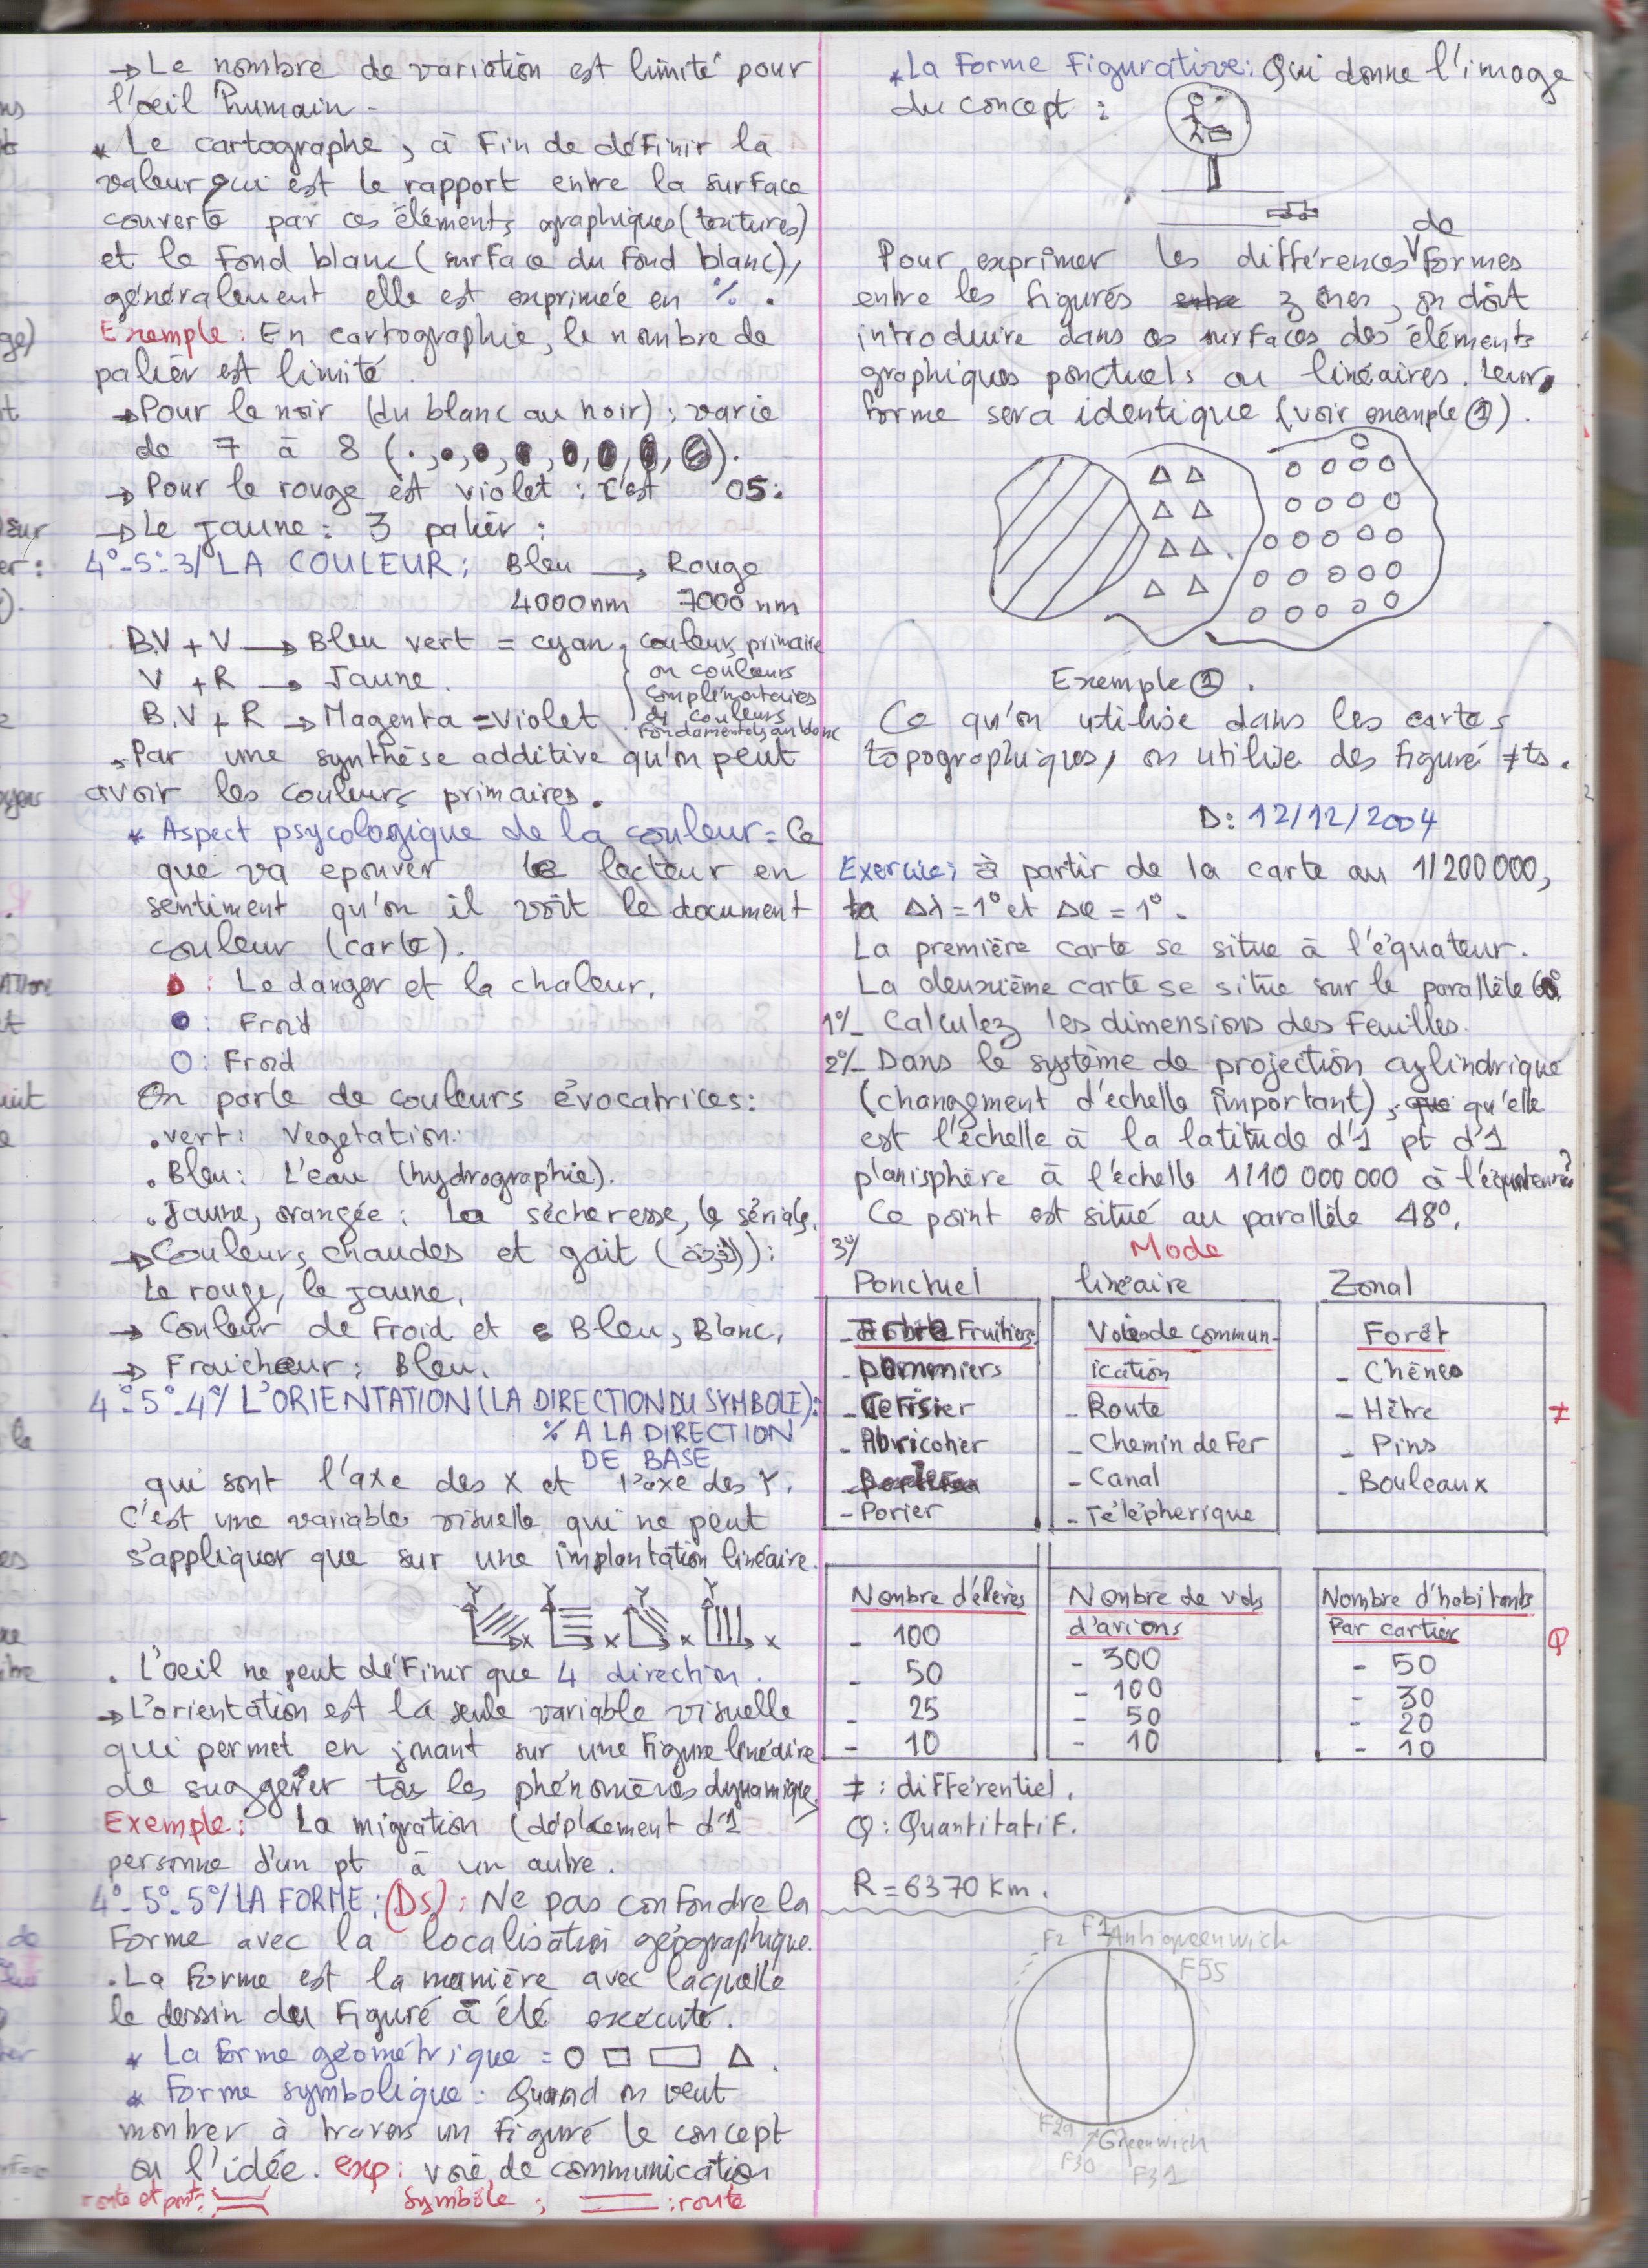 → Le nombre de variation est limité pour
l'œil humain -
* Le cartographe, à Fin de déFinir la
valeur qui est le rapport entre la surface
couverte par ces éléments graphiques (textures)
et le Fond blanc (surface du Fond blanc),
généralement elle est exprimée en %.
Exemple: En cartographie, le nombre de
palier est limité.
→ Pour le noir (du blanc au noir): varie
de 7 à 8
→ Pour le rouge est violet: c'est 05:
→ Le jaune: 3 palier:
4°-5°-3/ LA COULEUR: Bleu → Rouge
4000nm 7000nm
B.V + V → Bleu vert = cyan, couleurs primaire
V + R → Jaune. ou couleurs
complémentaires
B.V + R → Magenta = violet. de couleurs
Fondamentals au blanc
. Par une synthèse additive qu'on peut
avoir les couleurs primaires.
* Aspect psycologique de la couleur = Ce
que va epouver le lecteur en
sentiment qu'on il voit le document
couleur (carte).
: Le danger et la chaleur.
: Froid
: Froid
On parle de couleurs évocatrices:
. vert: Vegetation.
. Bleu: L'eau (hydrographie).
. Jaune, orangée: La sécheresse, le
→ Couleurs chaudes et gait
Le rouge, le jaune.
→ Couleur de Froid et Bleu, Blanc.
→ Fraicheur: Bleu.
4°-5°-4°/ L'ORIENTATION (LA DIRECTION DU SYMBOLE):
% A LA DIRECTION
DE BASE
qui sont l'axe des X et l'axe des Y.
C'est une variable visuelle qui ne peut
s'appliquer que sur une implantation linéaire.
Y Y Y Y
X X X X
. L'oeil ne peut déFinir que 4 direction.
→ L'orientation est la seule variable visuelle
qui permet en jouant sur une Figure linéaire
de suggérer tous les phénomènes dynamique.
Exemple: La migration (déplacement d'1
personne d'un pt à un autre.
4°-5°-5°/ LA FORME: (Ds): Ne pas conFondre la
Forme avec la localisation géographique.
. La Forme est la manière avec laquelle
le dessin du Figuré à été executé.
* La Forme géométrique =
* Forme symbolique: Quand on veut
montrer à travers un Figuré le concept
ou l'idée. exp: voie de communication
route et pont: symbôle; : route
* La Forme Figurative: Qui donne l'image
du concept:
Pour exprimer les différences de formes
entre les figurés zones, on doit
introduire dans ces surFaces des éléments
graphiques ponctuels ou linéaires. Leur
Forme sera identique (voir exemple ①).
Exemple ①.
Ce qu'on utilise dans les cartes
topographiques, on utilise des Figuré ≠ts.
D: 12/12/2004
Exercice: à partir de la carte au 1/200 000,
Δλ = 1° et Δφ = 1°.
La première carte se situe à l'équateur.
La deuxième carte se situe sur le parallèle 60°.
1°/- Calculez les dimensions des Feuilles.
2°/- Dans le système de projection cylindrique
(changement d'échelle important), qu'elle
est l'échelle à la latitude d'1 pt d'1
planisphère à l'échelle 1/10 000 000 à l'équateur?
Ce point est situé au parallèle 48°.
3°/ Mode
Ponctuel linéaire Zonal
- Arbre Fruitiers Voies de commun- Forêt
- Pommiers ication - Chênes
- Cerisier - Route - Hêtre ≠
- Abricotier - Chemin de Fer - Pins
- Canal - Bouleaux
- Porier - Télépherique
Nombre d'élèves Nombre de vols Nombre d'habitants
- 100 d'avions Par cartier Q
- 50 - 300 - 50
- 25 - 100 - 30
- 10 - 50 - 20
- 10 - 10
≠ : diFFérentiel.
Q : QuantitatiF.
R = 6370 Km.
F2 F1 Antigreenwich
F55
F29 Greenwich
F30 F31